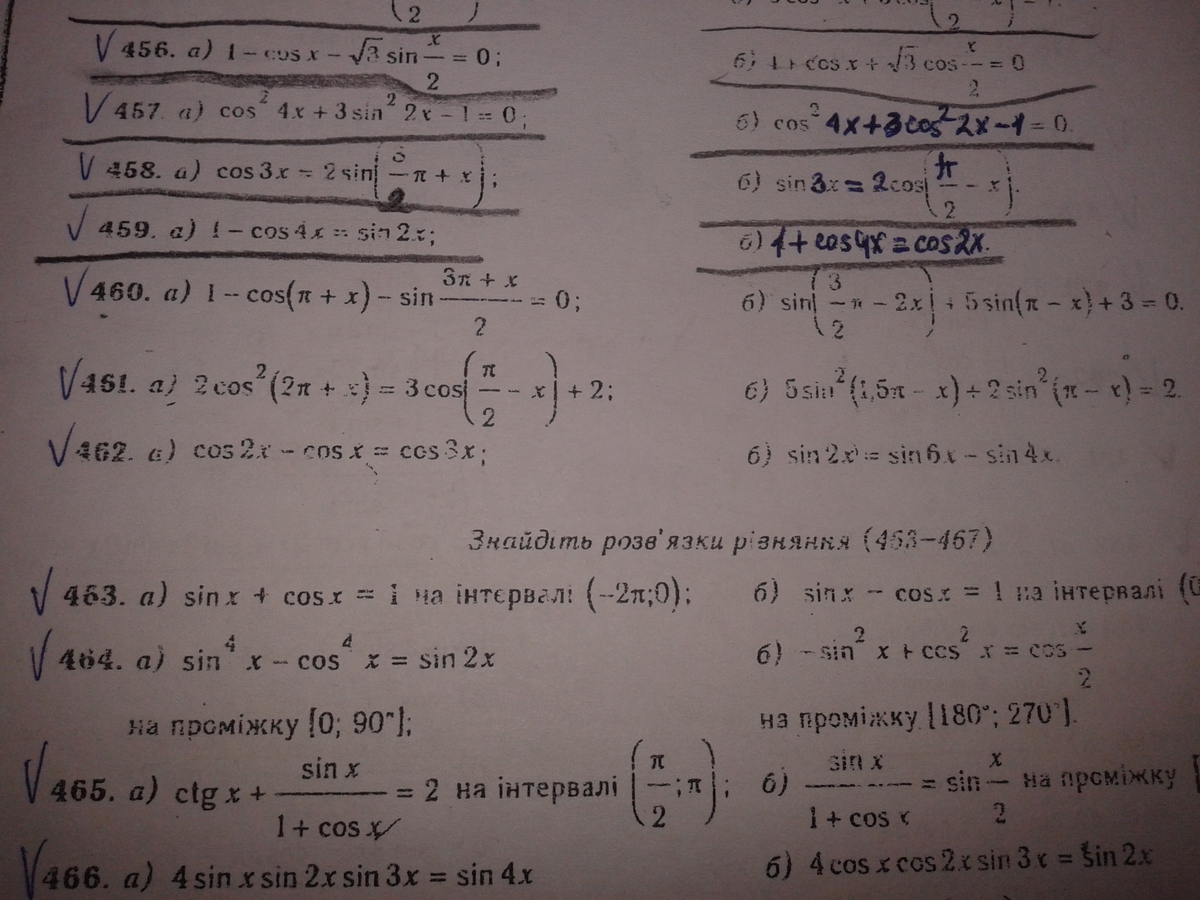 456. а) 1 − cos x − √3 sin x/2 = 0; б) 1 + cos x + √3 cos x/2 = 0
457. а) cos² 4x + 3 sin² 2x − 1 = 0; б) cos² 4x + 3 cos² 2x − 1 = 0.
458. а) cos 3x = 2 sin(3/2 π + x); б) sin 3x = 2 cos(π/2 − x).
459. а) 1 − cos 4x = sin 2x; б) 1 + cos 4x = cos 2x.
460. а) 1 − cos(π + x) − sin (3π + x)/2 = 0; б) sin(3/2 π − 2x) + 5 sin(π − x) + 3 = 0.
461. а) 2 cos² (2π + x) = 3 cos(π/2 − x) + 2; б) 5 sin² (1,5π − x) + 2 sin² (π − x) = 2.
462. а) cos 2x − cos x = cos 3x; б) sin 2x = sin 6x − sin 4x.
Знайдіть розв'язки рівняння (463−467)
463. а) sin x + cos x = 1 на інтервалі (−2π;0); б) sin x − cos x = 1 на інтервалі (0
464. а) sin⁴ x − cos⁴ x = sin 2x б) −sin² x + cos² x = cos x/2
на проміжку [0; 90°]; на проміжку [180°; 270°].
465. а) ctg x + sin x/(1 + cos x) = 2 на інтервалі (π/2; π); б) sin x/(1 + cos x) = sin x/2 на проміжку [
466. а) 4 sin x sin 2x sin 3x = sin 4x б) 4 cos x cos 2x sin 3x = sin 2x